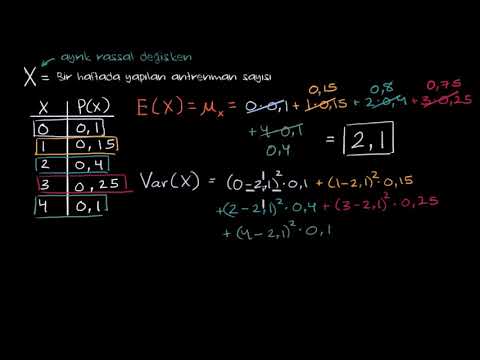 ayrık rassal değişken
X = Bir haftada yapılan antrenman sayısı
X P(X)
0 0,1
1 0,15
2 0,4
3 0,25
4 0,1
0,15 0,8 0,75
E(X) = μx = 0·0,1 + 1·0,15 + 2·0,4 + 3·0,25
+ 4·0,1 = 2,1
0,4
Var(X) = (0-2,1)²·0,1 + (1-2,1)²·0,15
+(2-2,1)²·0,4 + (3-2,1)²·0,25
+ (4-2,1)²·0,1